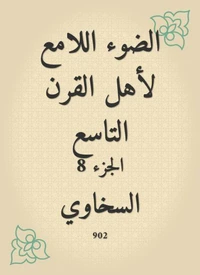 الضوء اللامع
لأهل القرن
التاسع
الجزء 8
السخاوي
902